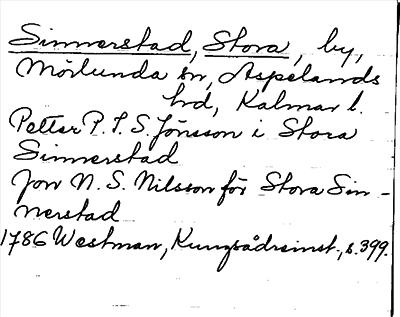 Sinnerstad, Stora, by,
Mörlunda sn, Aspelands
hd, Kalmar l.
Petter P. S. Jönsson i Stora
Sinnerstad
Jon N. S. Nilsson för Stora Sin-
nerstad
1786 Westman, Kungsådreinst., s. 399.